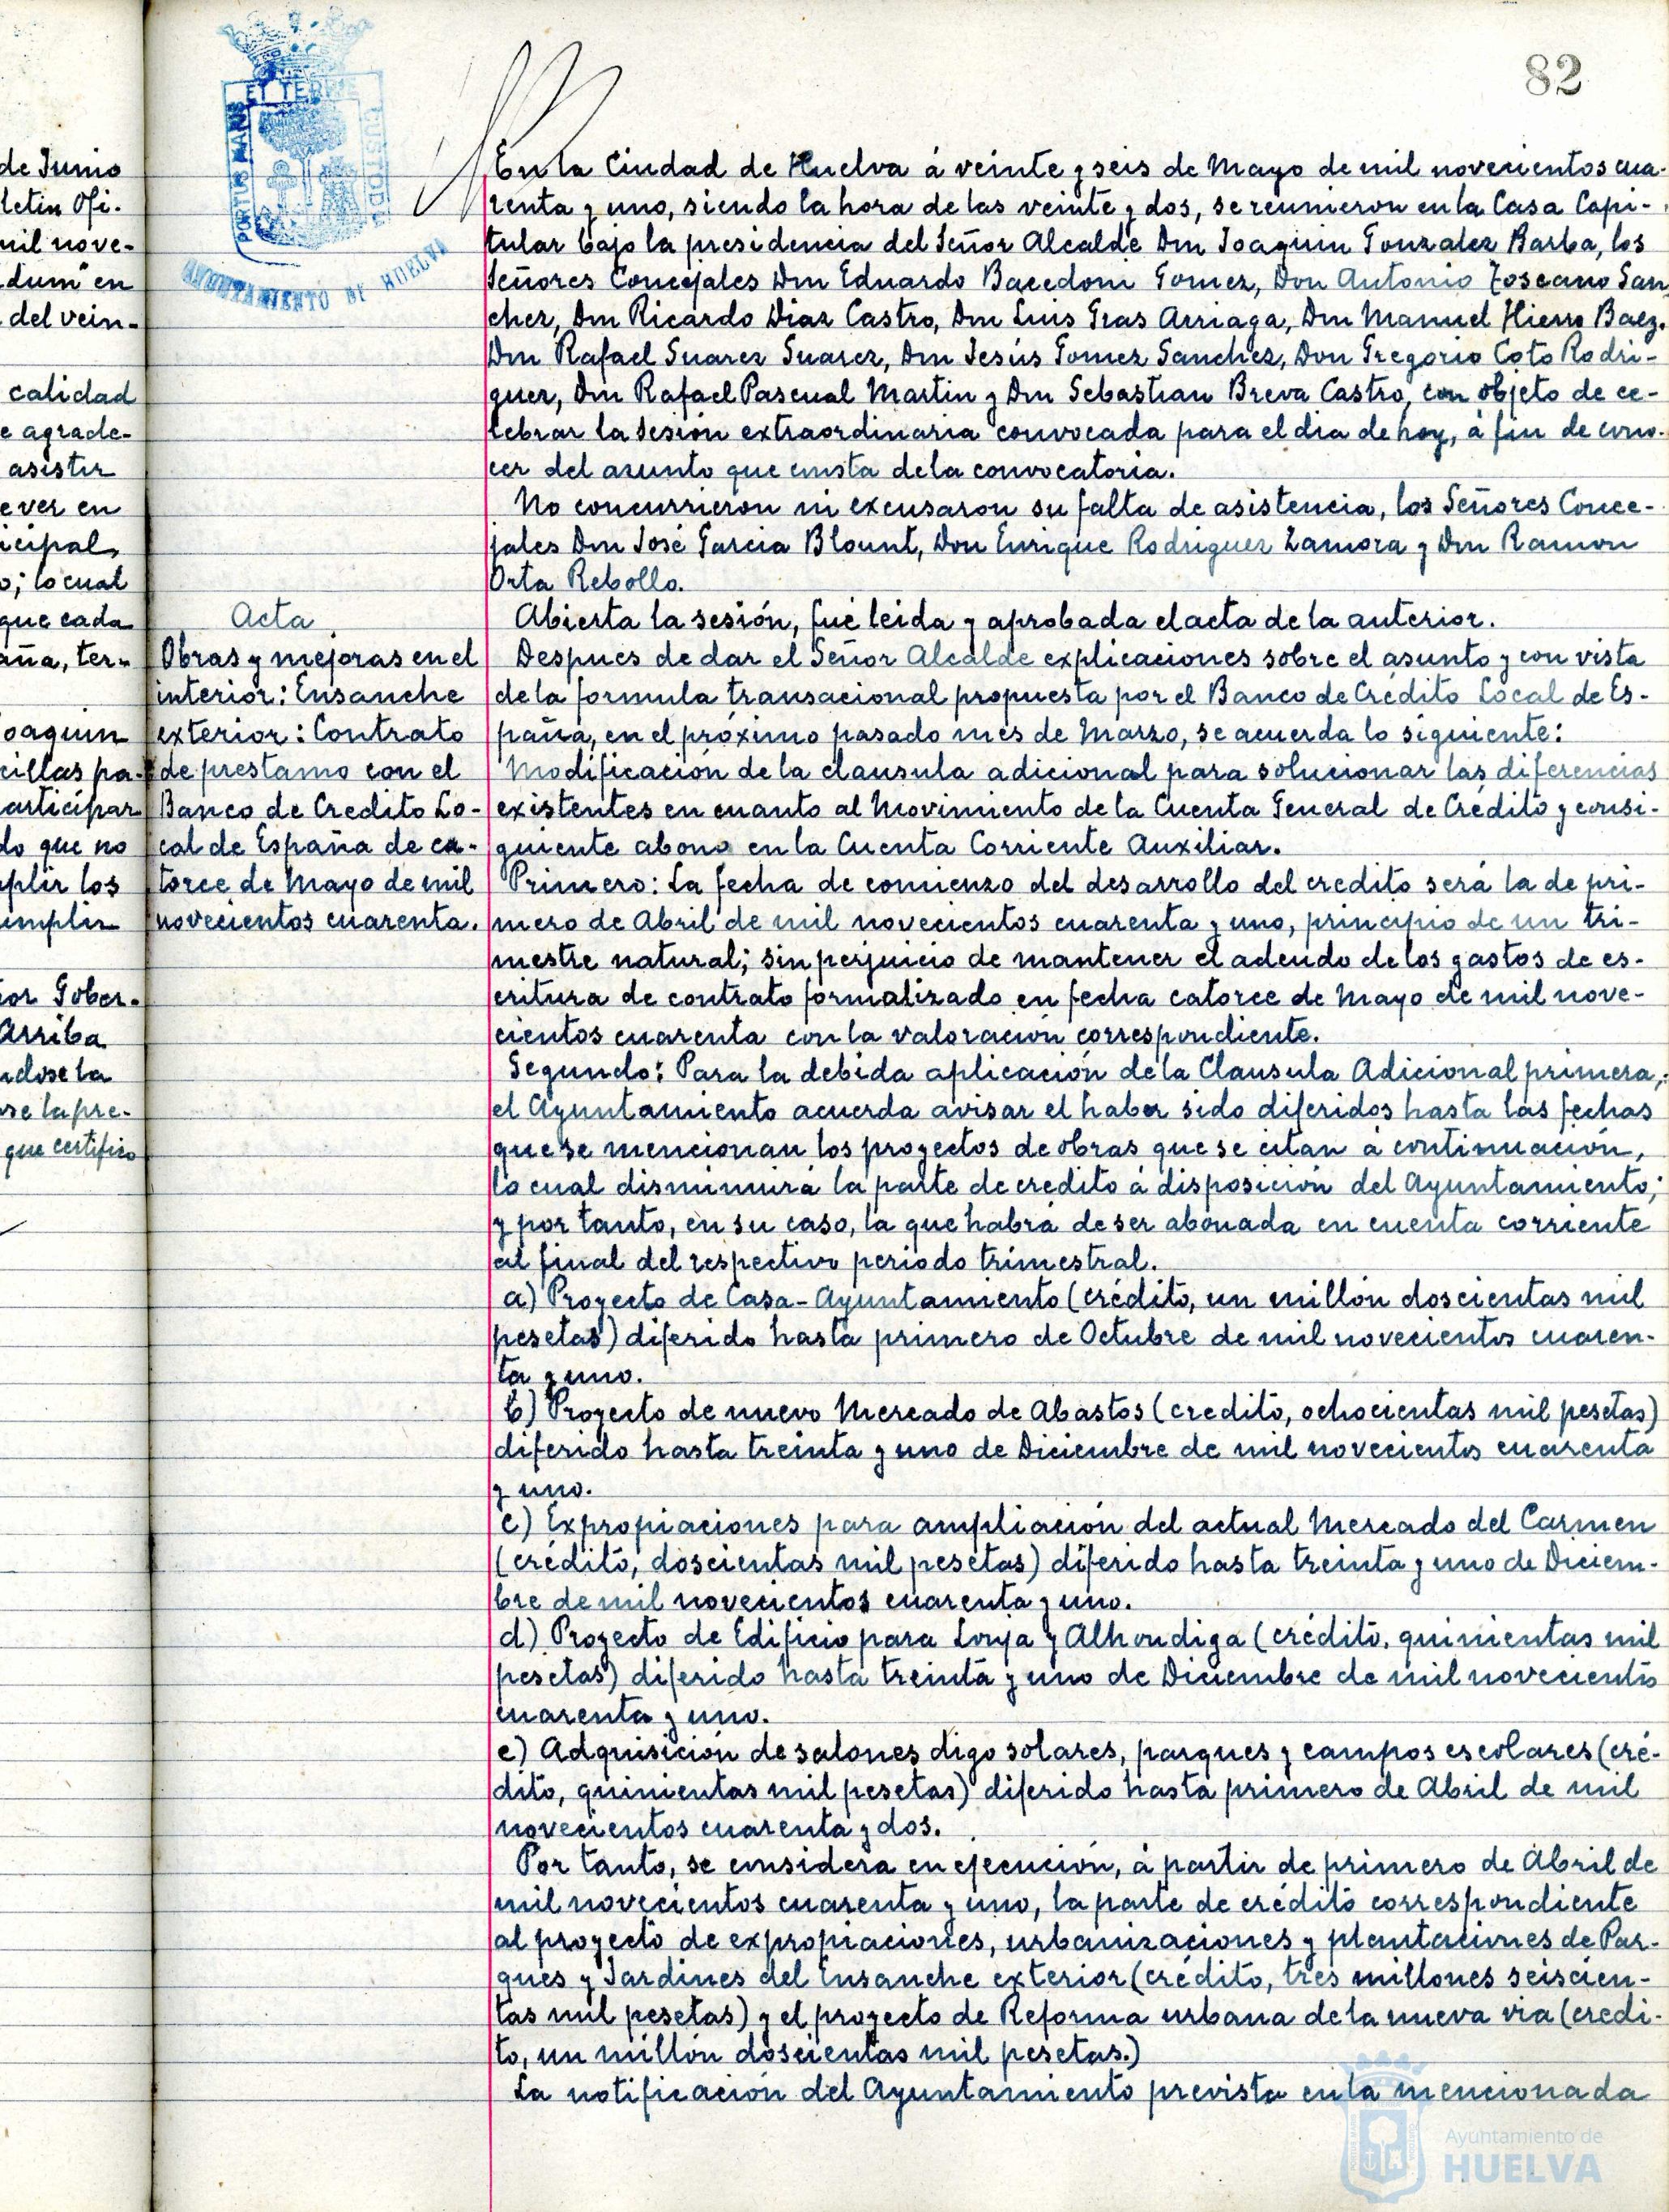 82
PORTUS MARIS
ET TERRE
CUSTODIA
AYUNTAMIENTO DE HUELVA
de Junio
letin Ofi-
mil nove-
dum" en
del vein-
calidad
e agrade-
asistir
ever en
icipal,
o; lo cual
que cada
aña, ter-
oaquin
cillas pa-
articipar
do que no
plir los
umplir
or Gober-
Arriba
ndose la
se la pre-
que certifico
Acta
Obras y mejoras en el
interior: Ensanche
exterior: Contrato
de prestamo con el
Banco de Credito Lo-
cal de España de ca-
torce de Mayo de mil
novecientos cuarenta.
En la Ciudad de Huelva á veinte y seis de Mayo de mil novecientos cua-
renta y uno, siendo la hora de las veinte y dos, se reunieron en la Casa Capi-
tular bajo la presidencia del Señor Alcalde Don Joaquin Gonzalez Barba, los
Señores Concejales Don Eduardo Bacedoni Gomez, Don Antonio Toscano San-
chez, Don Ricardo Diaz Castro, Don Luis Gras Arriaga, Don Manuel Hierro Baez,
Don Rafael Suarez Suarez, Don Jesús Gomez Sanchez, Don Gregorio Coto Rodri-
guez, Don Rafael Pascual Martin y Don Sebastian Breva Castro, con objeto de ce-
lebrar la sesión extraordinaria convocada para el dia de hoy, á fin de cono-
cer del asunto que consta de la convocatoria.
No concurrieron ni excusaron su falta de asistencia, los Señores Conce-
jales Don José Garcia Blount, Don Enrique Rodriguez Zamora y Don Ramon
Orta Rebollo.
Abierta la sesión, fué leida y aprobada el acta de la anterior.
Despues de dar el Señor Alcalde explicaciones sobre el asunto y con vista
de la formula transacional propuesta por el Banco de Crédito Local de Es-
paña, en el próximo pasado mes de Marzo, se acuerda lo siguiente:
Modificación de la clausula adicional para solucionar las diferencias
existentes en cuanto al Movimiento de la Cuenta General de Crédito y consi-
guiente abono en la Cuenta Corriente Auxiliar.
Primero: La fecha de comienzo del desarrollo del credito será la de pri-
mero de Abril de mil novecientos cuarenta y uno, principio de un tri-
mestre natural; sin perjuicio de mantener el adeudo de los gastos de es-
critura de contrato formalizado en fecha catorce de Mayo de mil nove-
cientos cuarenta con la valoración correspondiente.
Segundo: Para la debida aplicación de la Clausula Adicional primera,
el Ayuntamiento acuerda avisar el haber sido diferidos hasta las fechas
que se mencionan los proyectos de obras que se citan á continuación,
lo cual disminuirá la parte de credito á disposición del Ayuntamiento;
y por tanto, en su caso, la que habrá de ser abonada en cuenta corriente
al final del respectivo periodo trimestral.
a) Proyecto de Casa-Ayuntamiento (crédito, un millón doscientas mil
pesetas) diferido hasta primero de Octubre de mil novecientos cuaren-
ta y uno.
b) Proyecto de nuevo Mercado de Abastos (credito, ochocientas mil pesetas)
diferido hasta treinta y uno de Diciembre de mil novecientos cuarenta
y uno.
c) Expropiaciones para ampliación del actual Mercado del Carmen
(crédito, doscientas mil pesetas) diferido hasta treinta y uno de Diciem-
bre de mil novecientos cuarenta y uno.
d) Proyecto de Edificio para Lonja y Alhondiga (crédito, quinientas mil
pesetas) diferido hasta treinta y uno de Diciembre de mil novecientos
cuarenta y uno.
e) Adquisición de salones digo solares, parques y campos escolares (cré-
dito, quinientas mil pesetas) diferido hasta primero de Abril de mil
novecientos cuarenta y dos.
Por tanto, se considera en ejecución, á partir de primero de Abril de
mil novecientos cuarenta y uno, la parte de crédito correspondiente
al proyecto de expropiaciones, urbanizaciones y plantaciones de Par-
ques y Jardines del Ensanche exterior (crédito, tres millones seiscien-
tas mil pesetas) y el proyecto de Reforma urbana de la nueva via (credi-
to, un millón doscientas mil pesetas.)
La notificación del Ayuntamiento prevista en la mencionada
Ayuntamiento de
HUELVA